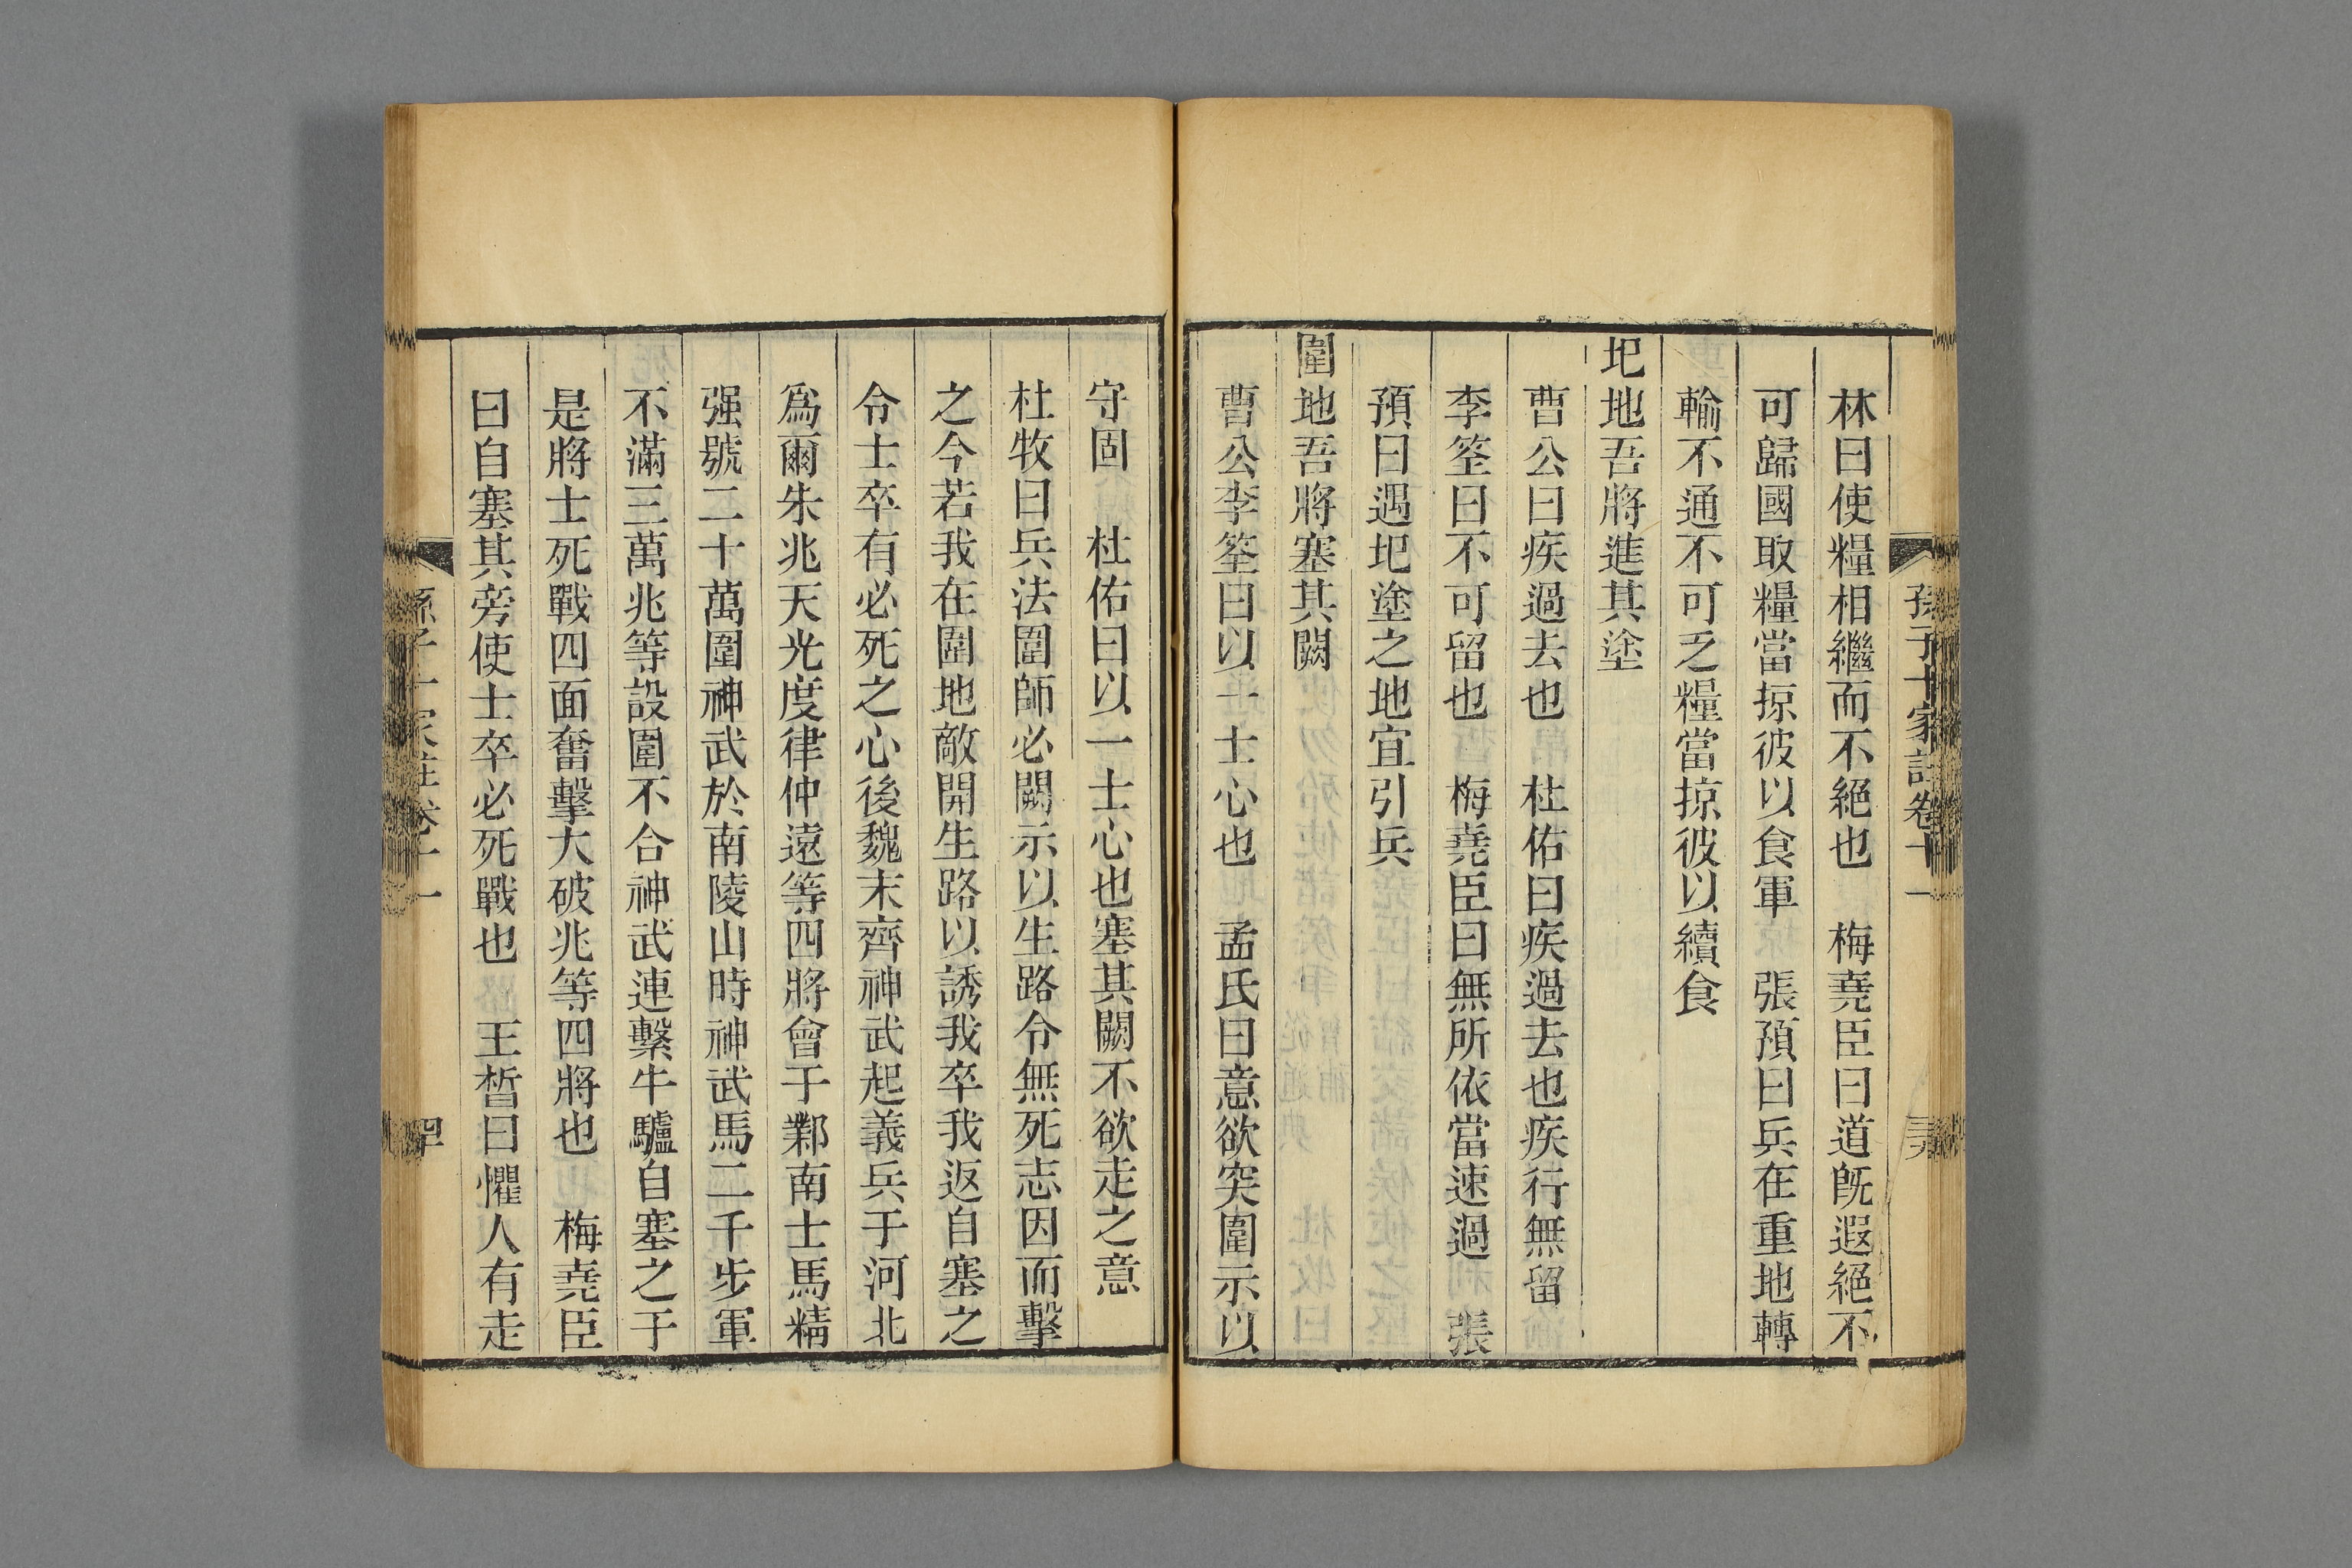 孫子十家註卷十一
林曰使糧相繼而不絕也　梅堯臣曰道旣遐絕不
可歸國取糧當掠彼以食軍　張預曰兵在重地轉
輸不通不可乏糧當掠彼以續食
圯地吾將進其塗
曹公曰疾過去也　杜佑曰疾過去也疾行無留
李筌曰不可留也　梅堯臣曰無所依當速過　張
預曰遇圯塗之地宜引兵
圍地吾將塞其闕
曹公李筌曰以一士心也　孟氏曰意欲突圍示以
守固　杜佑曰以一士心也塞其闕不欲走之意
杜牧曰兵法圍師必闕示以生路令無死志因而擊
之今若我在圍地敵開生路以誘我卒我返自塞之
令士卒有必死之心後魏末齊神武起義兵于河北
爲爾朱兆天光度律仲遠等四將會于鄴南士馬精
强號二十萬圍神武於南陵山時神武馬二千步軍
不滿三萬兆等設圍不合神武連繫牛驢自塞之于
是將士死戰四面奮擊大破兆等四將也　梅堯臣
曰自塞其旁使士卒必死戰也　王晳曰懼人有走
孫子十家註卷十一